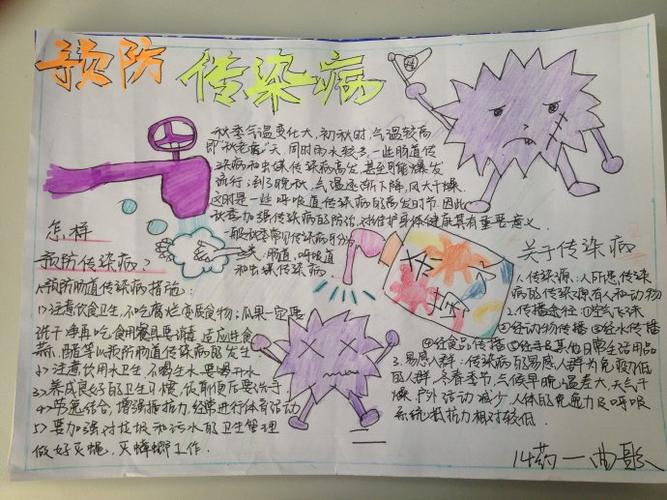 预防 传染病
秋季气温变化大,初秋时,气温较高
即"秋老虎"天,同时雨水较多,一些肠道传
染病和虫媒传染病高发,甚至可能爆发
流行;到了晚秋,气温逐渐下降,风大干燥
这时是一些呼吸道传染病的高发时节.因此
秋季加强传染病的防治,对维护身体健康具有重要意义.
一般秋季常见传染病可分为
:肠道,呼吸道
和虫媒传染病.
怎样
预防传染病?
1、预防肠道传染病措施:
1>注意饮食卫生,不吃腐烂变质食物;瓜果一定要
洗干净再吃,食用餐具要消毒
新,醋等以预防肠道传染病的发生
2>注意饮用水卫生,不喝生水要喝开水
3>养成良好的卫生习惯,饭前便后要洗手
4>劳逸结合,增强抵抗力,经常进行体育活动
5>要加强对垃圾和污水的卫生管理
做好灭蝇,灭蟑螂工作.
关于传染病
1.传染源:人所患传染
病的传染源有人和动物
2.传播途径:①经空气飞沫
②经动物传播 ③经水传播
④经食品传播 ⑤经手&其他日常生活用品
3.易感人群:传染病的易感人群为免疫力低
的人群.冬春季节,气候早晚温差大,天气干
燥.户外活动减少,人体的免疫力及呼吸
系统抵抗力相对较低.
14药一曲歌